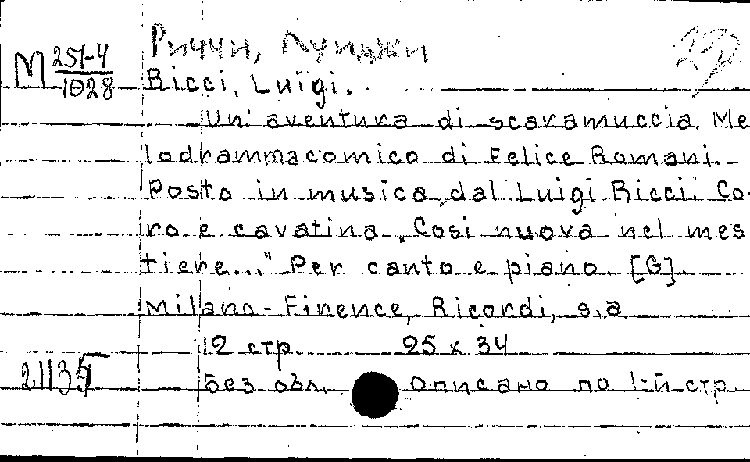 Риччи, Луиджи
М 251-4
1028
Ricci, Luigi.
Un' aventura di scaramuccia. Me
lodrammacomico di Felice Romani.
Posto in musica dal Luigi Ricci. Co-
ro e cavatina „Cosi nuova nel mes
tiere..." Per canto e piano. [G].
Milano-Finence, Ricordi, s.a.
12 стр. 25 x 34
21135 Без обл. Описано по 1-й стр.